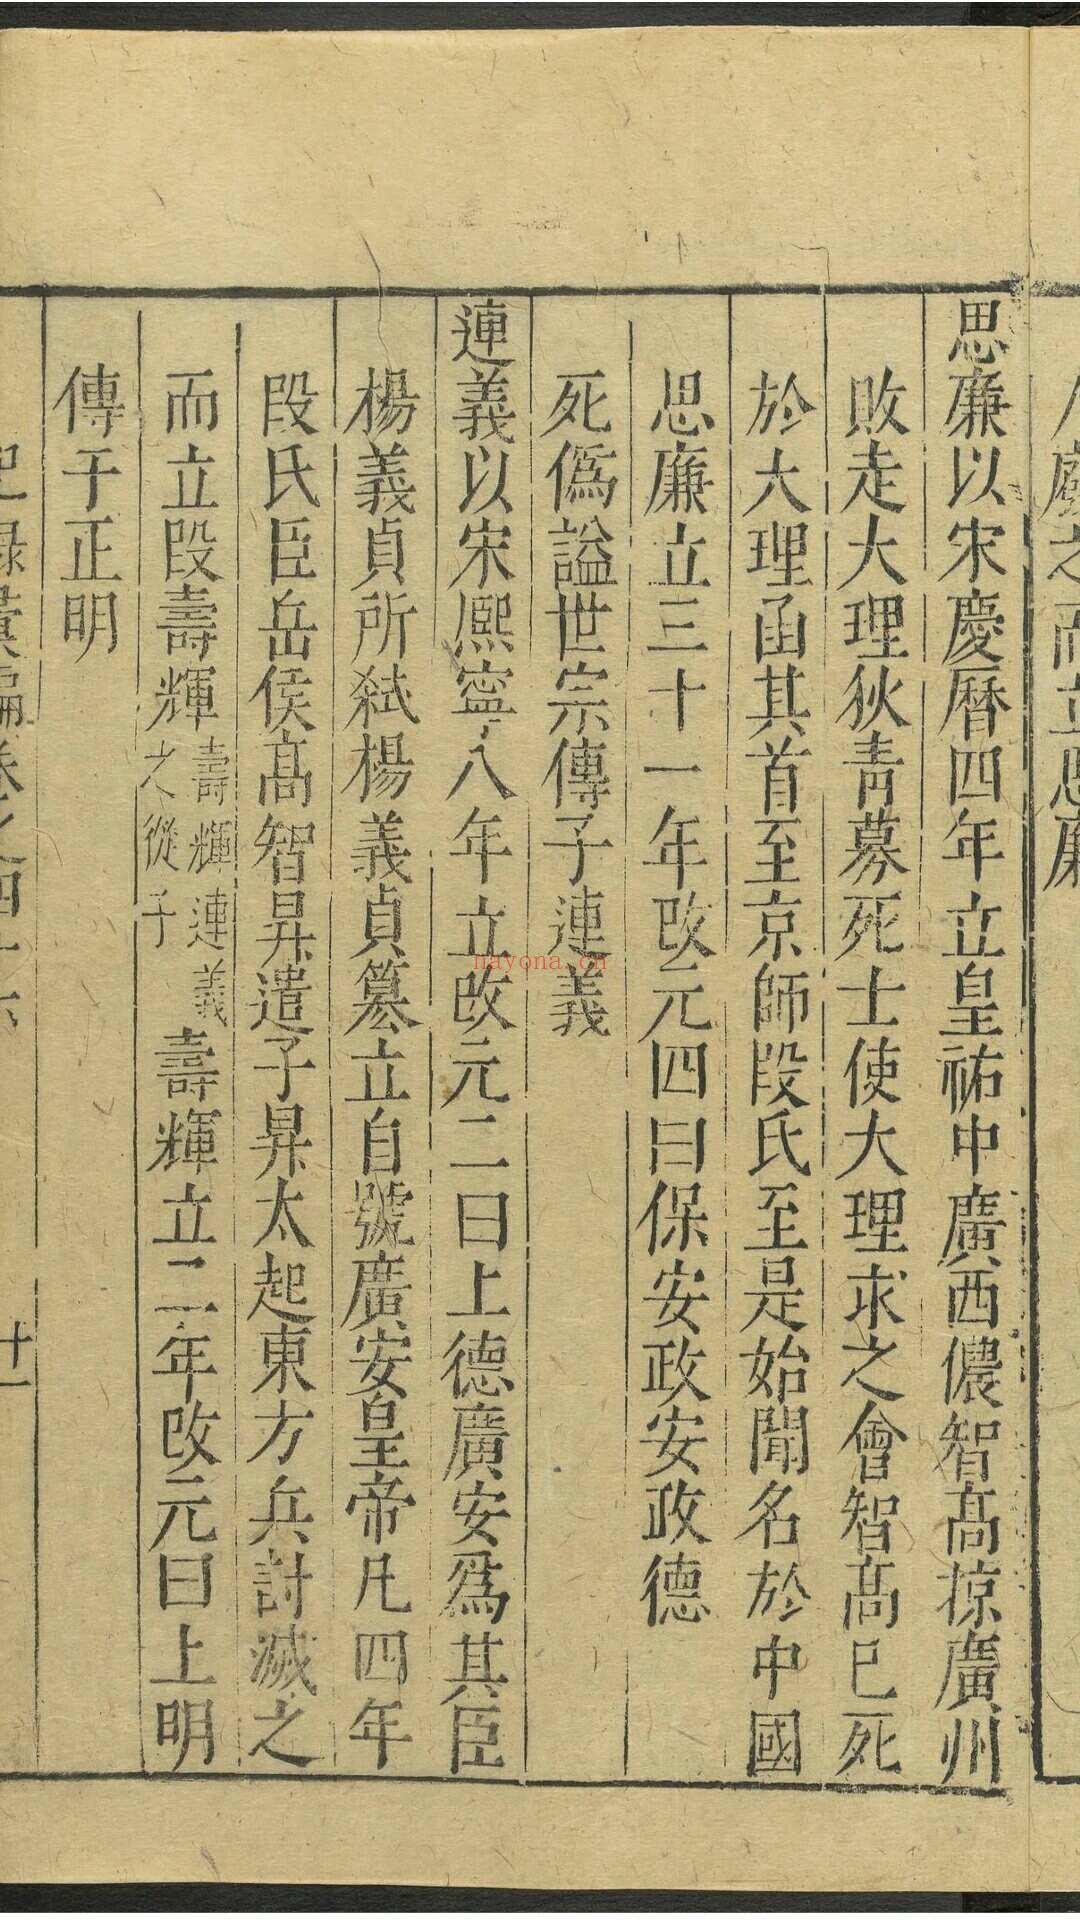 廢之而立思廉
思廉以宋慶曆四年立皇祐中廣西儂智高掠廣州
敗走大理狄青募死士使大理求之會智高已死
於大理函其首至京師段氏至是始聞名於中國
思廉立三十一年改元四曰保安政安政德
死僞謚世宗傳子連義
連義以宋熈寧八年立改元二曰上德廣安爲其臣
楊義貞所弑楊義貞簒立自號廣安皇帝凡四年
段氏臣岳侯高智昇遣子昇太起東方兵討滅之
而立段壽輝壽輝連義之從子壽輝立二年改元曰上明
傳于正明
記録彙編卷之四十六
十一
nayona.cn